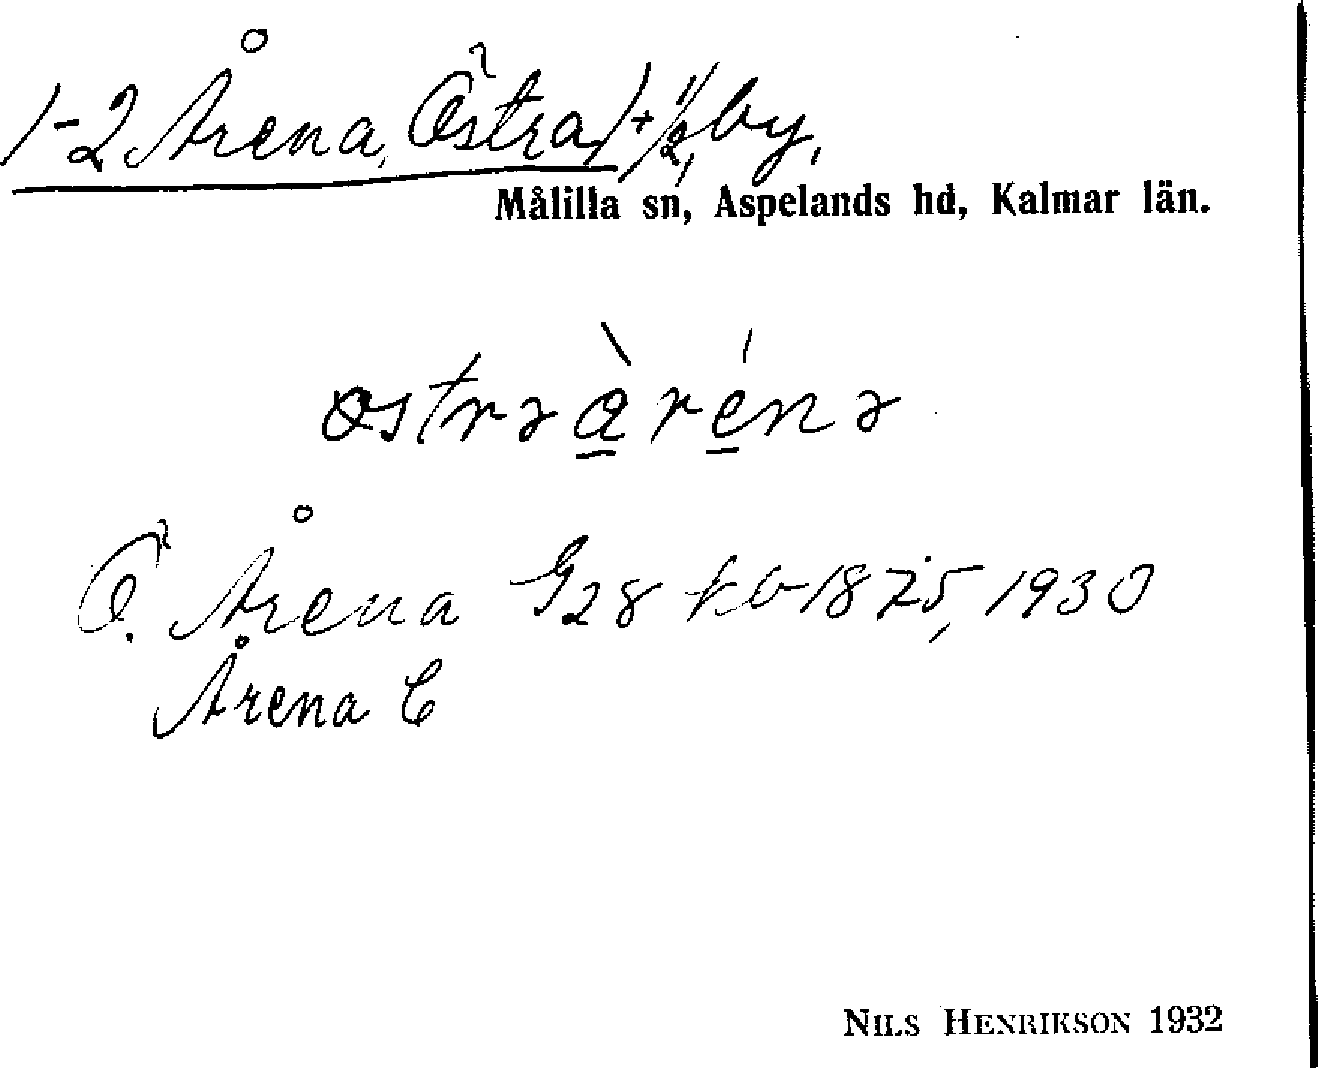 1-2 Årena, Östra, 1+1/2, by,
Målilla sn, Aspelands hd, Kalmar län.
østrə àrénə
Ö. Årena G28 kb 1875, 1930
Årena C
NILS HENRIKSON 1932